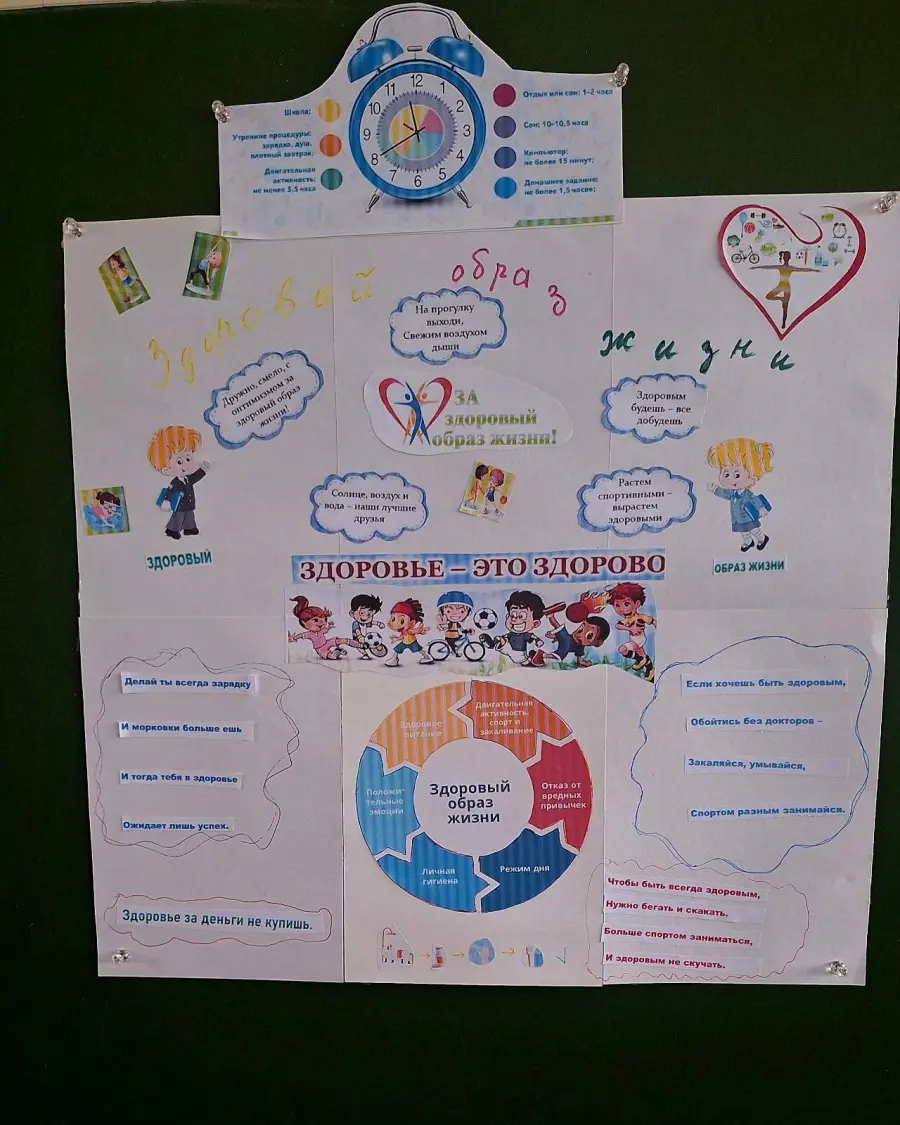 12
1
2
3
4
5
6
7
8
9
10
11
Школа;
Утренние процедуры:
зарядка, душ,
плотный завтрак;
Двигательная
активность:
не менее 3,5 часа
Отдых или сон: 1-2 часа
Сон: 10-10,5 часа
Компьютер:
не более 15 минут;
Домашнее задание:
не более 1,5 часов;
Здоровой образ жизни
На прогулку
выходи,
Свежим воздухом
дыши
Дружно, смело, с
оптимизмом за
здоровый образ
жизни!
ЗА
здоровый
образ жизни!
Здоровым
будешь – все
добудешь
Солнце, воздух и
вода – наши лучшие
друзья
Растем
спортивными –
вырастем
здоровыми
ЗДОРОВЫЙ
ОБРАЗ ЖИЗНИ
ЗДОРОВЬЕ – ЭТО ЗДОРОВО
Делай ты всегда зарядку
И морковки больше ешь
И тогда тебя в здоровье
Ожидает лишь успех.
Здоровье за деньги не купишь.
Здоровое
питание
Двигательная
активность,
спорт и
закаливание
Отказ от
вредных
привычек
Режим дня
Личная
гигиена
Положи-
тельные
эмоции
Здоровый
образ
жизни
Если хочешь быть здоровым,
Обойтись без докторов –
Закаляйся, умывайся,
Спортом разным занимайся.
Чтобы быть всегда здоровым,
Нужно бегать и скакать.
Больше спортом заниматься,
И здоровым не скучать.